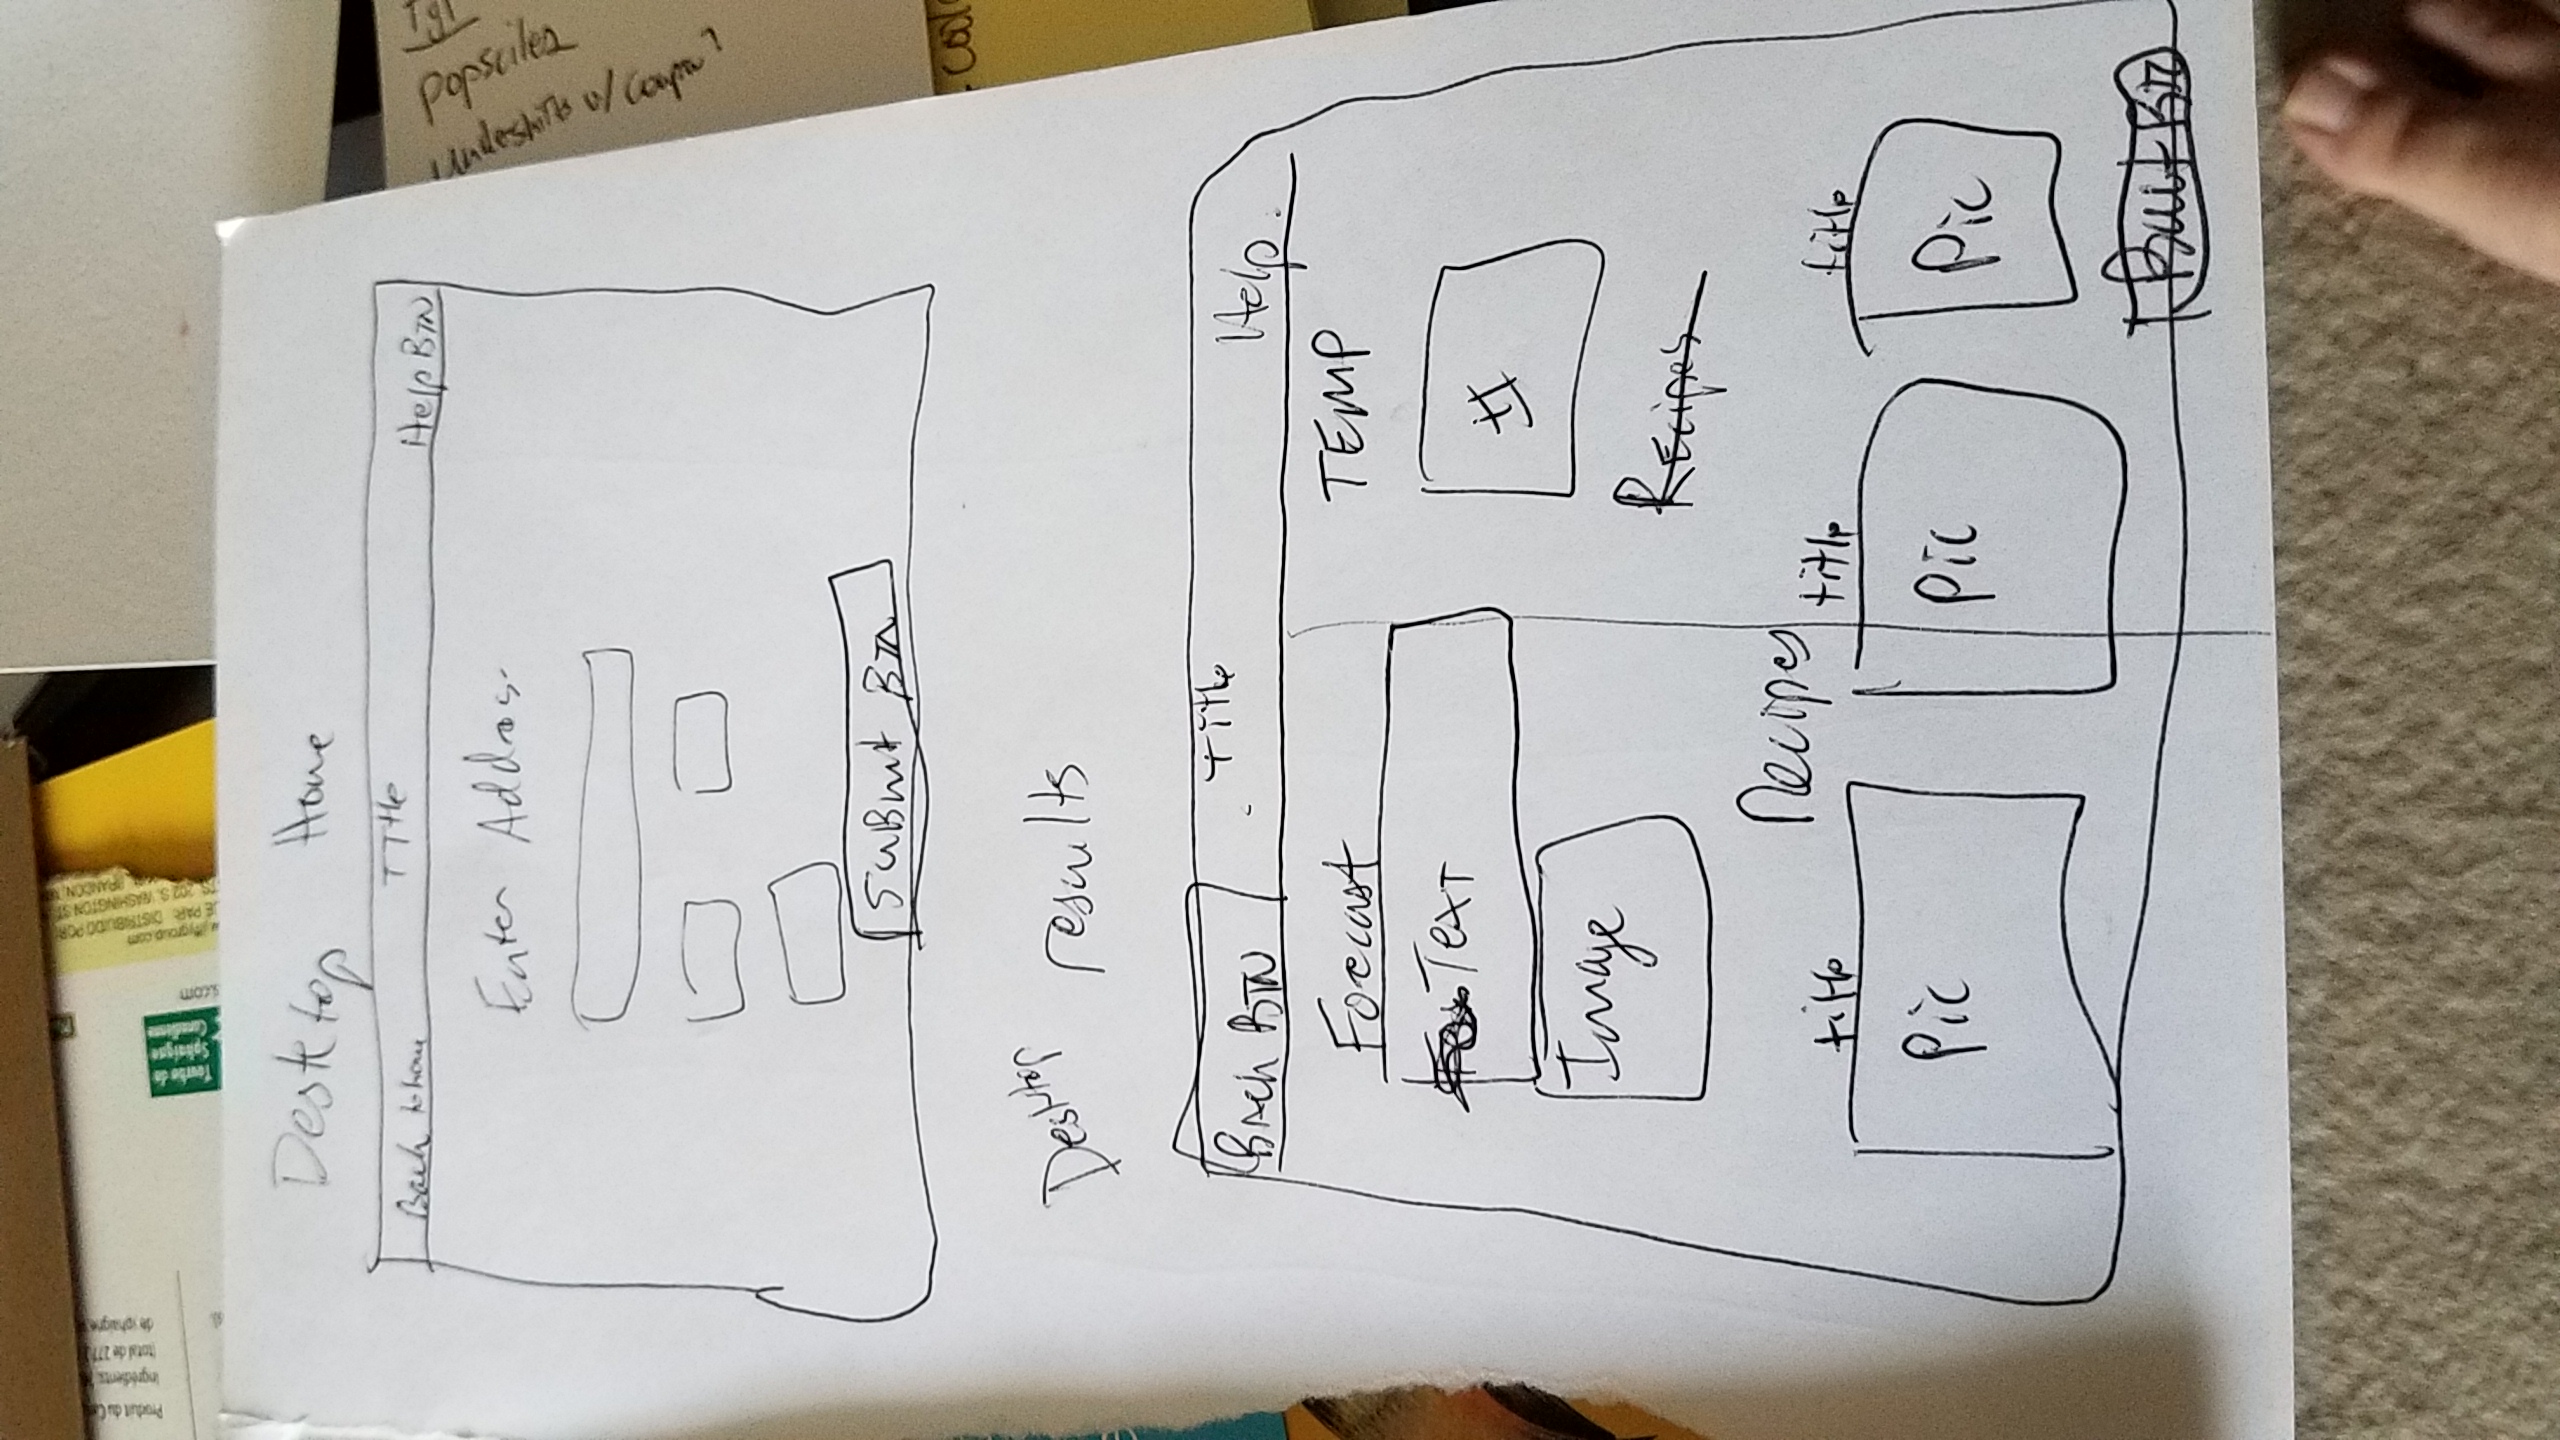 Desktop Home
Back to home Title Help BTN
Enter Address.
SuBmit BTN
Desktop results
Back BTN title Help.
Forecast
TEMP
Text
#
Image
REcipes
Recipes
title title title
Pic Pic Pic
Produit du
Ingrédients
(total de 277
de sphaigne
Tourbe de
Sphaigne
Canadienne
s.com
w.jiffygroup.com
PAR: DISTRIBUIDO POR
202 S. WASHINGTON ST
Tgt
popsicles
Undershirts w/ coupon?